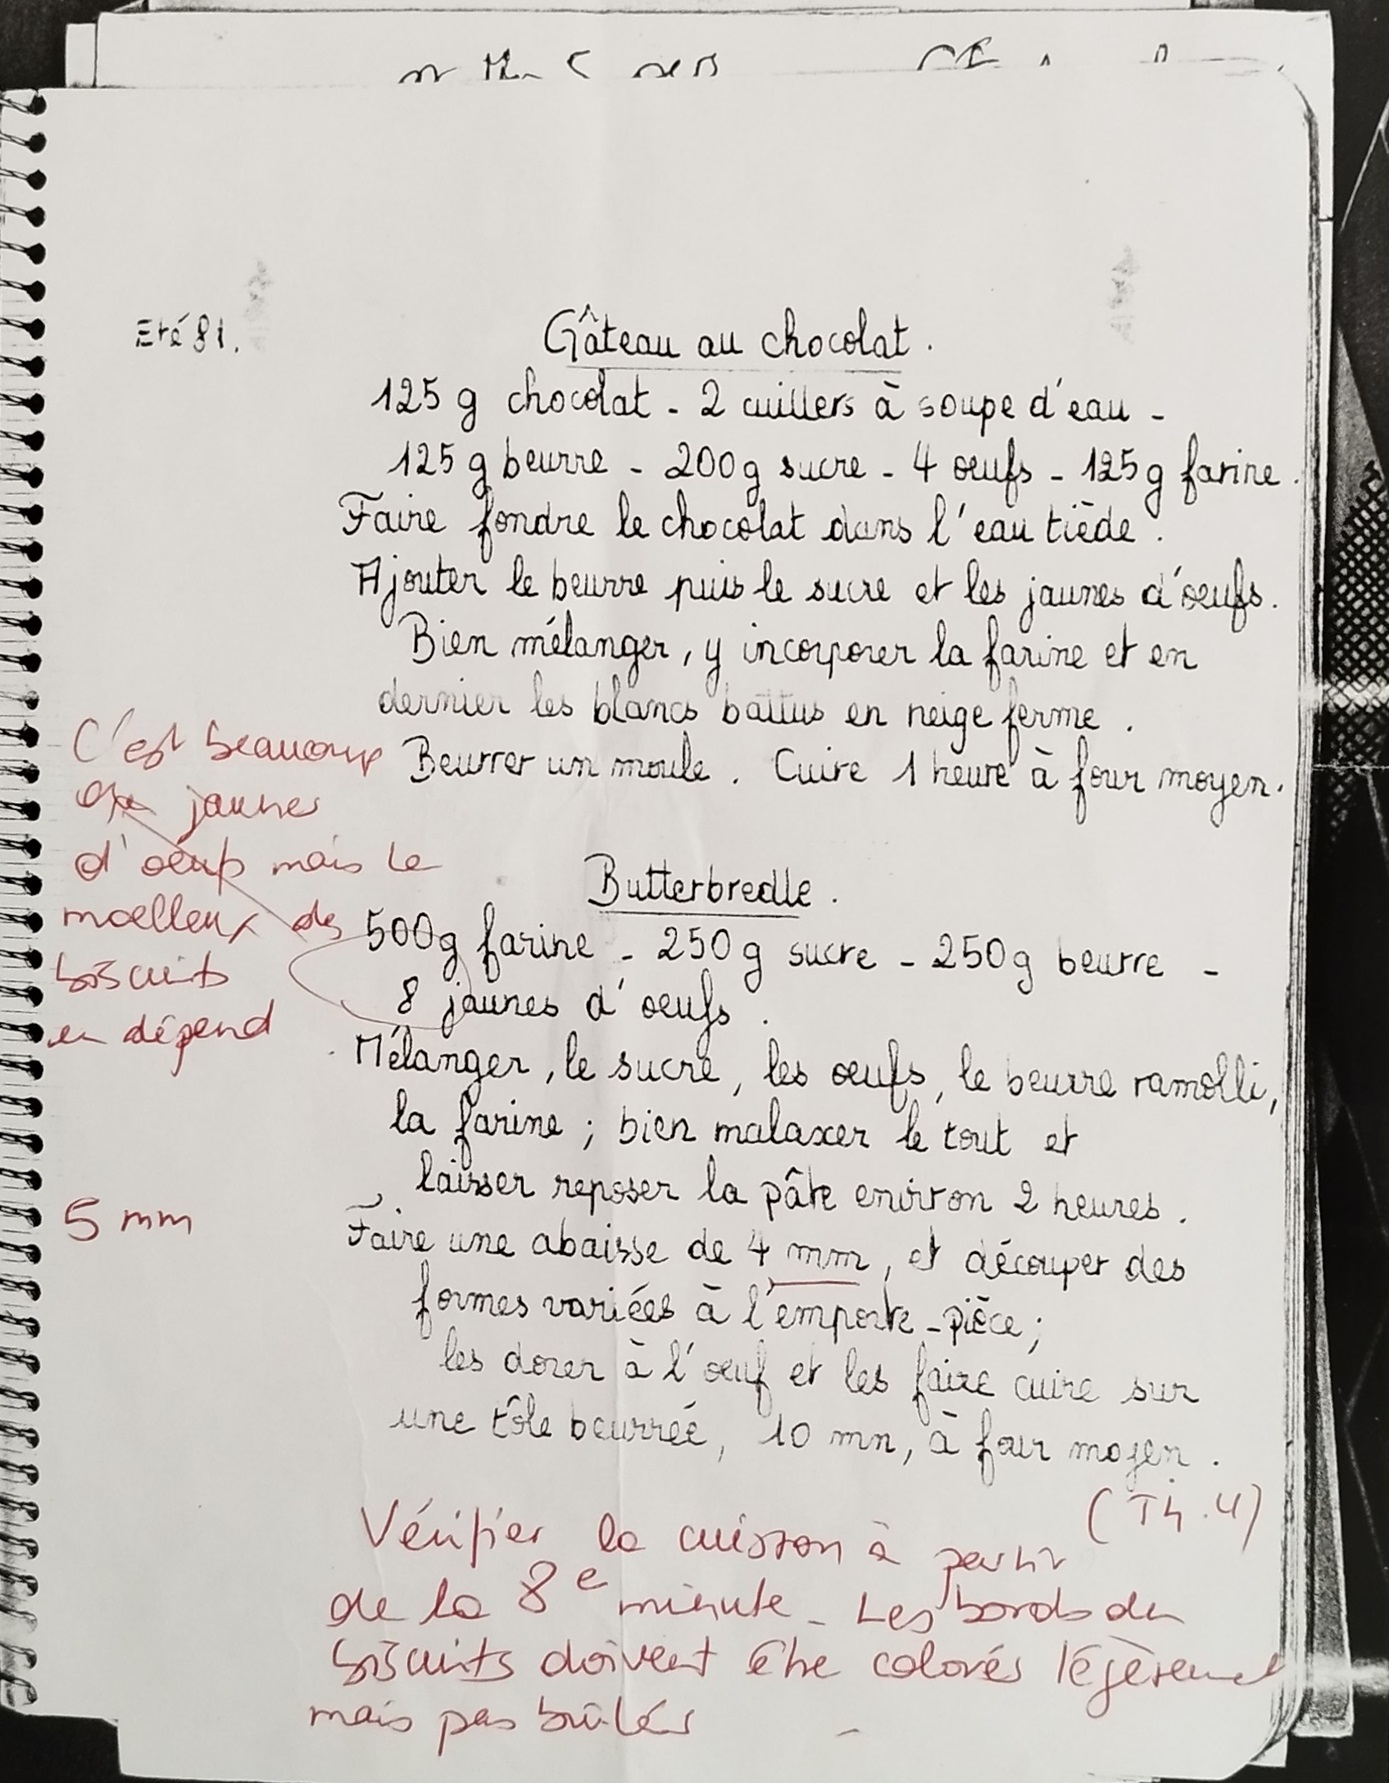 Eté 81.
Gâteau au chocolat.
125 g chocolat - 2 cuillers à soupe d'eau -
125 g beurre - 200g sucre - 4 œufs - 125g farine.
Faire fondre le chocolat dans l'eau tiède.
Ajouter le beurre puis le sucre et les jaunes d'œufs.
Bien mélanger, y incorporer la farine et en
dernier les blancs battus en neige ferme.
Beurrer un moule. Cuire 1 heure à four moyen.
C'est beaucoup
de jaunes
d'œufs mais le
moelleux des
biscuits
en dépend
Butterbredle.
500g farine - 250g sucre - 250g beurre -
8 jaunes d'œufs.
Mélanger, le sucre, les œufs, le beurre ramolli,
la farine ; bien malaxer le tout et
laisser reposer la pâte environ 2 heures.
5 mm
Faire une abaisse de 4 mm, et découper des
formes variées à l'emporte-pièce ;
les dorer à l'œuf et les faire cuire sur
une tôle beurrée, 10 mn, à four moyen.
(Th.4)
Vérifier la cuisson à partir
de la 8e minute - Les bords des
biscuits doivent être colorés légèrement
mais pas brûlés